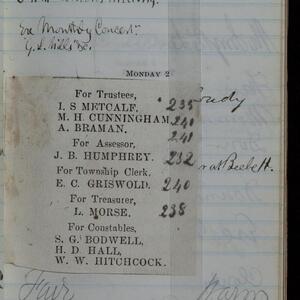 Eve Monthly Concert
MONDAY 2
For Trustees,
I. S METCALF, 235
M. H. CUNNINGHAM, 240
A. BRAMAN. 241
For Assessor,
J. B. HUMPHREY. 232
For Township Clerk.
E. C. GRISWOLD. 240
For Treasurer,
L. MORSE. 238
For Constables,
S. G. BODWELL,
H. D. HALL,
W. W. HITCHCOCK.
Fair
Warm